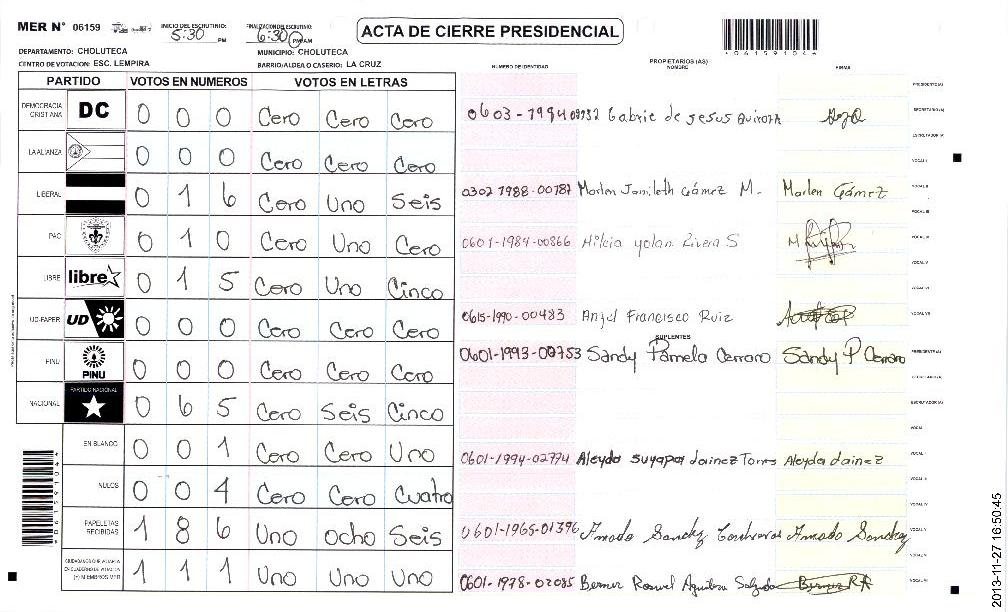 MER N° 06159 INICIO DEL ESCRUTINIO: 5:30 PM FINALIZACION ESCRUTINIO: 6:30 PM/AM ACTA DE CIERRE PRESIDENCIAL
*06159104*
DEPARTAMENTO: CHOLUTECA MUNICIPIO: CHOLUTECA
CENTRO DE VOTACION: ESC. LEMPIRA BARRIO/ALDEA O CASERIO: LA CRUZ
NUMERO DE IDENTIDAD PROPIETARIOS (AS) NOMBRE FIRMA
PARTIDO VOTOS EN NUMEROS VOTOS EN LETRAS
PRESIDENTE(A)
DEMOCRACIA CRISTIANA DC 0 0 0 Cero Cero Cero
0603-1994 Gabrie de Jesus SECRETARIO(A)
ESCRUTADOR (A)
LA ALIANZA 0 0 0 Cero Cero Cero
VOCAL I
LIBERAL 0 1 6 Cero Uno Seis
0302 1988-00787 Gámez M. Marlen Gámez VOCAL II
VOCAL III
PAC 0 1 0 Cero Uno Cero
0601-1984-00866 Rivera S VOCAL IV
VOCAL V
LIBRE libre 0 1 5 Cero Uno Cinco
VOCAL VI
UD-FAPER UD 0 0 0 Cero Cero Cero
0615-1990-00483 Angel Francisco Ruiz VOCAL VII
SUPLENTES
PINU PINU 0 0 0 Cero Cero Cero
0601-1993-00753 Sandy Pamela Cerraro Sandy P Cerraro PRESIDENTE(A)
SECRETARIO(A)
NACIONAL PARTIDO NACIONAL 0 6 5 Cero Seis Cinco
ESCRUTADOR (A)
VOCAL
EN BLANCO 0 0 1 Cero Cero Uno
0601-1994-02774 Aleyda suyapa dainez Torres Aleyda dainez
NULOS 0 0 4 Cero Cero Cuatro
PAPELETAS RECIBIDAS 1 8 6 Uno ocho Seis
0601-1965-01396 Amado Sanchez Contreras Amado Sanchez
CIUDADANOS QUE VOTARON EN CUADERNO DE VOTACION (+) MIEMBROS MER 1 1 1 Uno Uno Uno
0601-1978-02085
*06159104*
2013-11-27 16:50:45